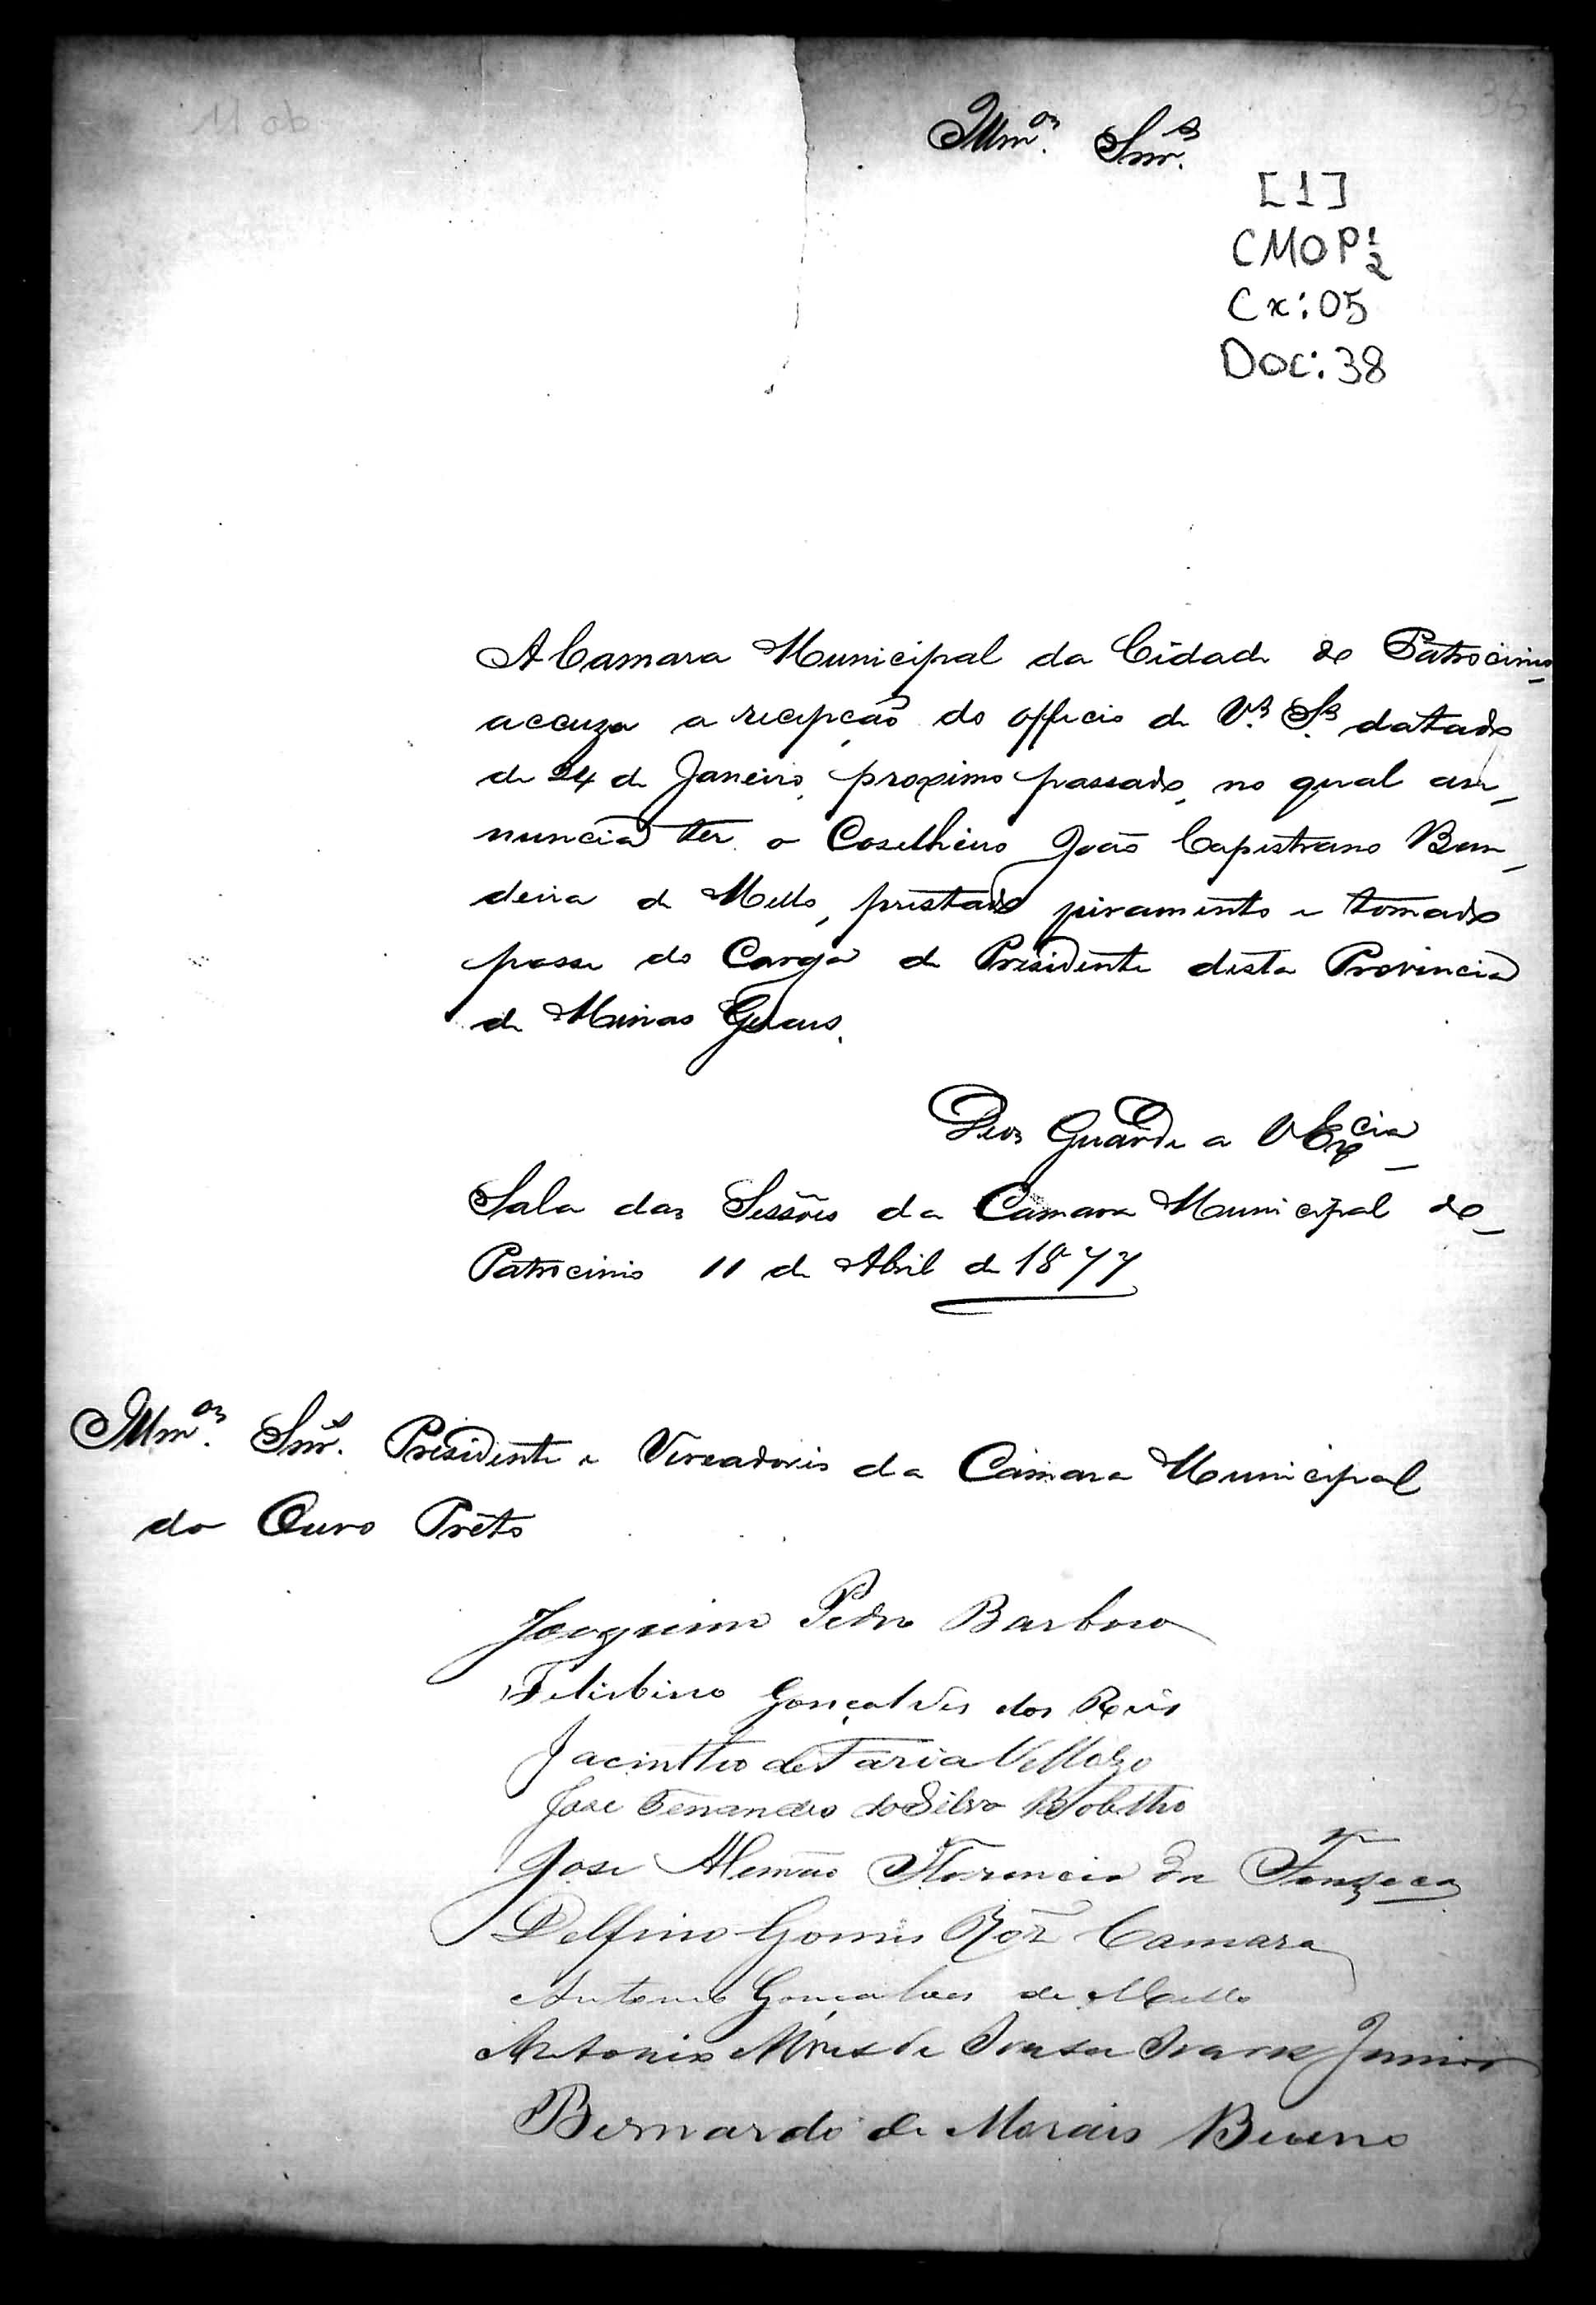 Illmos. Snrs.
[1]
CMOP 1/2
Cx: 05
Doc: 38
A Camara Municipal da Cidade do Patrocinio
accuza a recepção do officio de V.as S.as datado
de 24 de Janeiro, proximo passado, no qual an-
nuncia ter o Coselheiro João Capistrano Ban-
deira de Mello, prestado juramento e tomado
posse do Cargo de Presidente desta Provincia
de Minas Geraes.
Deos Guarde a V Excia
Sala das Sessões da Camara Municipal do
Patrocinio 11 de Abril de 1877
Illmos. Snrs. Presidente e Vereadores da Camara Municipal
do Ouro Preto
Joaquim Pedro Barboza
Felisbino Gonçalves dos Reis
Jacintho de Faria Vellozo
José Fernandes da Silva Botelho
José Alemão Florencio da Fonseca
Delfino Gomes Roiz Camara
Antonio Gonçalves de Mello
Antonio de Souza Junior
Bernardo de Morais Bueno